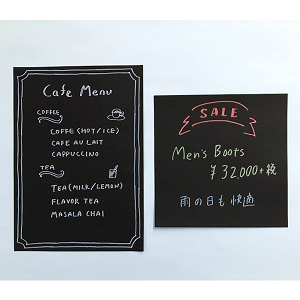 Cafe Menu
COFFEE
COFFE (HOT/ICE)
CAFE AU LAIT
CAPPUCCINO
TEA
TEA (MILK/LEMON)
FLAVOR TEA
MASALA CHAI
SALE
Men's Boots
¥32000+税
雨の日も快適